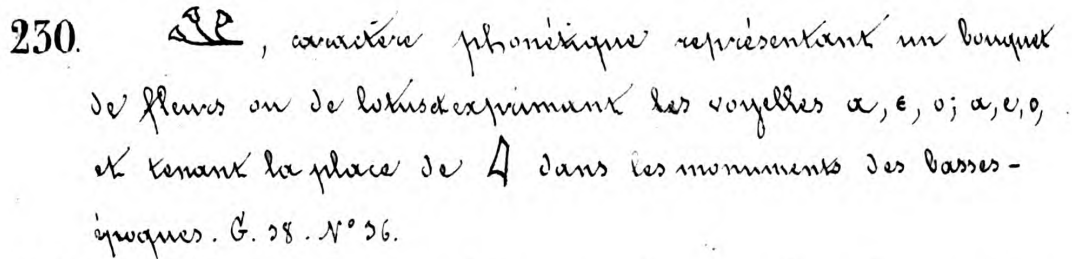 230. , caractère phonétique représentant un bouquet
de fleurs ou de lotus et exprimant les voyelles ⲁ, ⲉ, ⲟ; a, e, o,
et tenant la place de 𓇋 dans les monuments des basses-
époques. G. 38. N° 36.